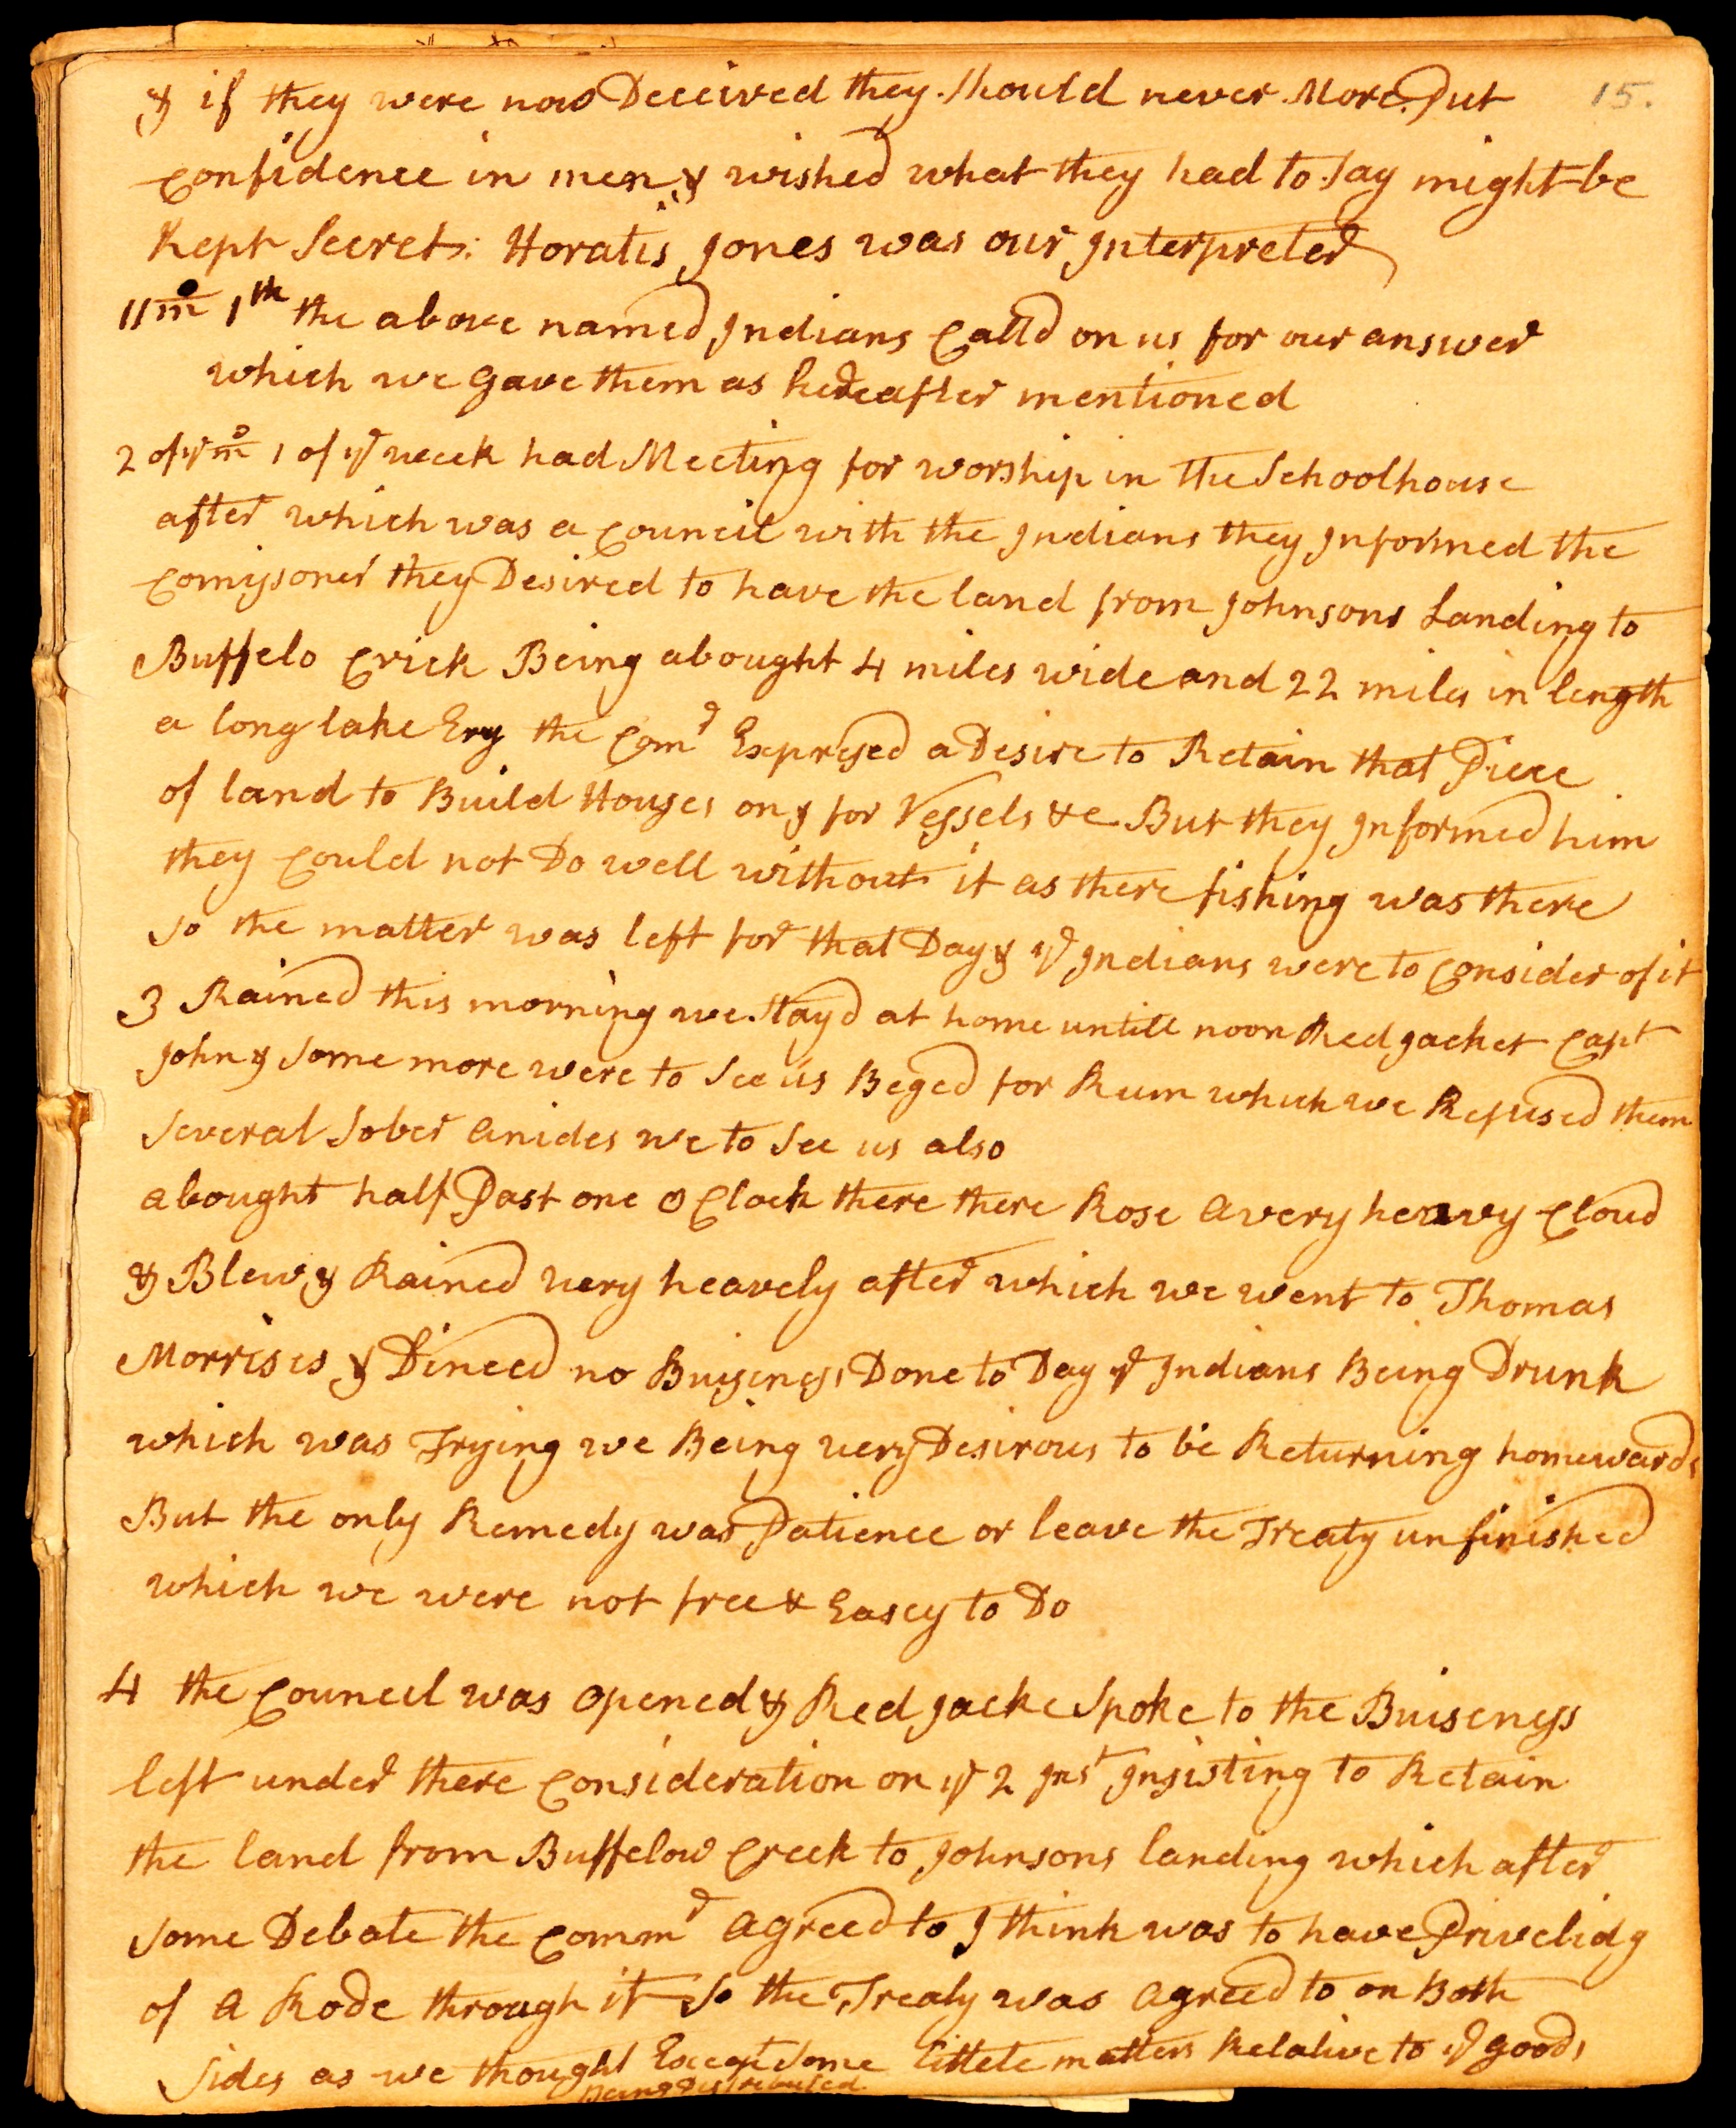 15.
& if they were now Deceived they Should never More Put
confidence in men & wished what they had to Say might be
Kept Secret: Horatis Jones was our Interpreter
11mo 1th the above named Indians Calld on us for our answer
which we gave them as hereafter mentioned
2 of ye mo 1 of ye week had Meeting for worship in the Schoolhouse
after which was a Council with the Indians they Informed the
Comissoner they Desired to have the land from Johnsons Landing to
Buffelo Crick Being abought 4 miles wide and 22 miles in length
a long lake Ery the Comr Expressed a Desire to Retain that Piece
of land to Build Houses on & for Vessels &c But they Informed him
they Could not Do well without it as there fishing was there
So the matter was left for that Day & ye Indians were to Consider of it
3 Rained this morning we Stayd at home untill noon Red Jacket Capt
John & Some more were to See us Beged for Rum which we Refused them
Several Sober Anides we to See us also
abought half Past one O Clock there there Rose a very heavy Cloud
& Blew & Rained very heavely after which we went to Thomas
Morrises & Dineed no Buiseness Done to Day ye Indians Being Drunk
which was Trying we Being very Desirous to be Returning homewards
But the only Remedy was Patience or leave the Treaty unfinished
which we were not free & Easey to Do
4 the Council was opened & Red Jacke Spoke to the Buiseness
left under there Consideration on ye 2 Inst Insisting to Retain
the land from Buffelow Creek to Johnsons landing which after
Some Debate the Commr agreed to I think was to have Privelidg
of a Rode through it So the Treaty was agreed to on Both
Sides as we thought Except Some littele matters Relative to ye goods
Being Distributed